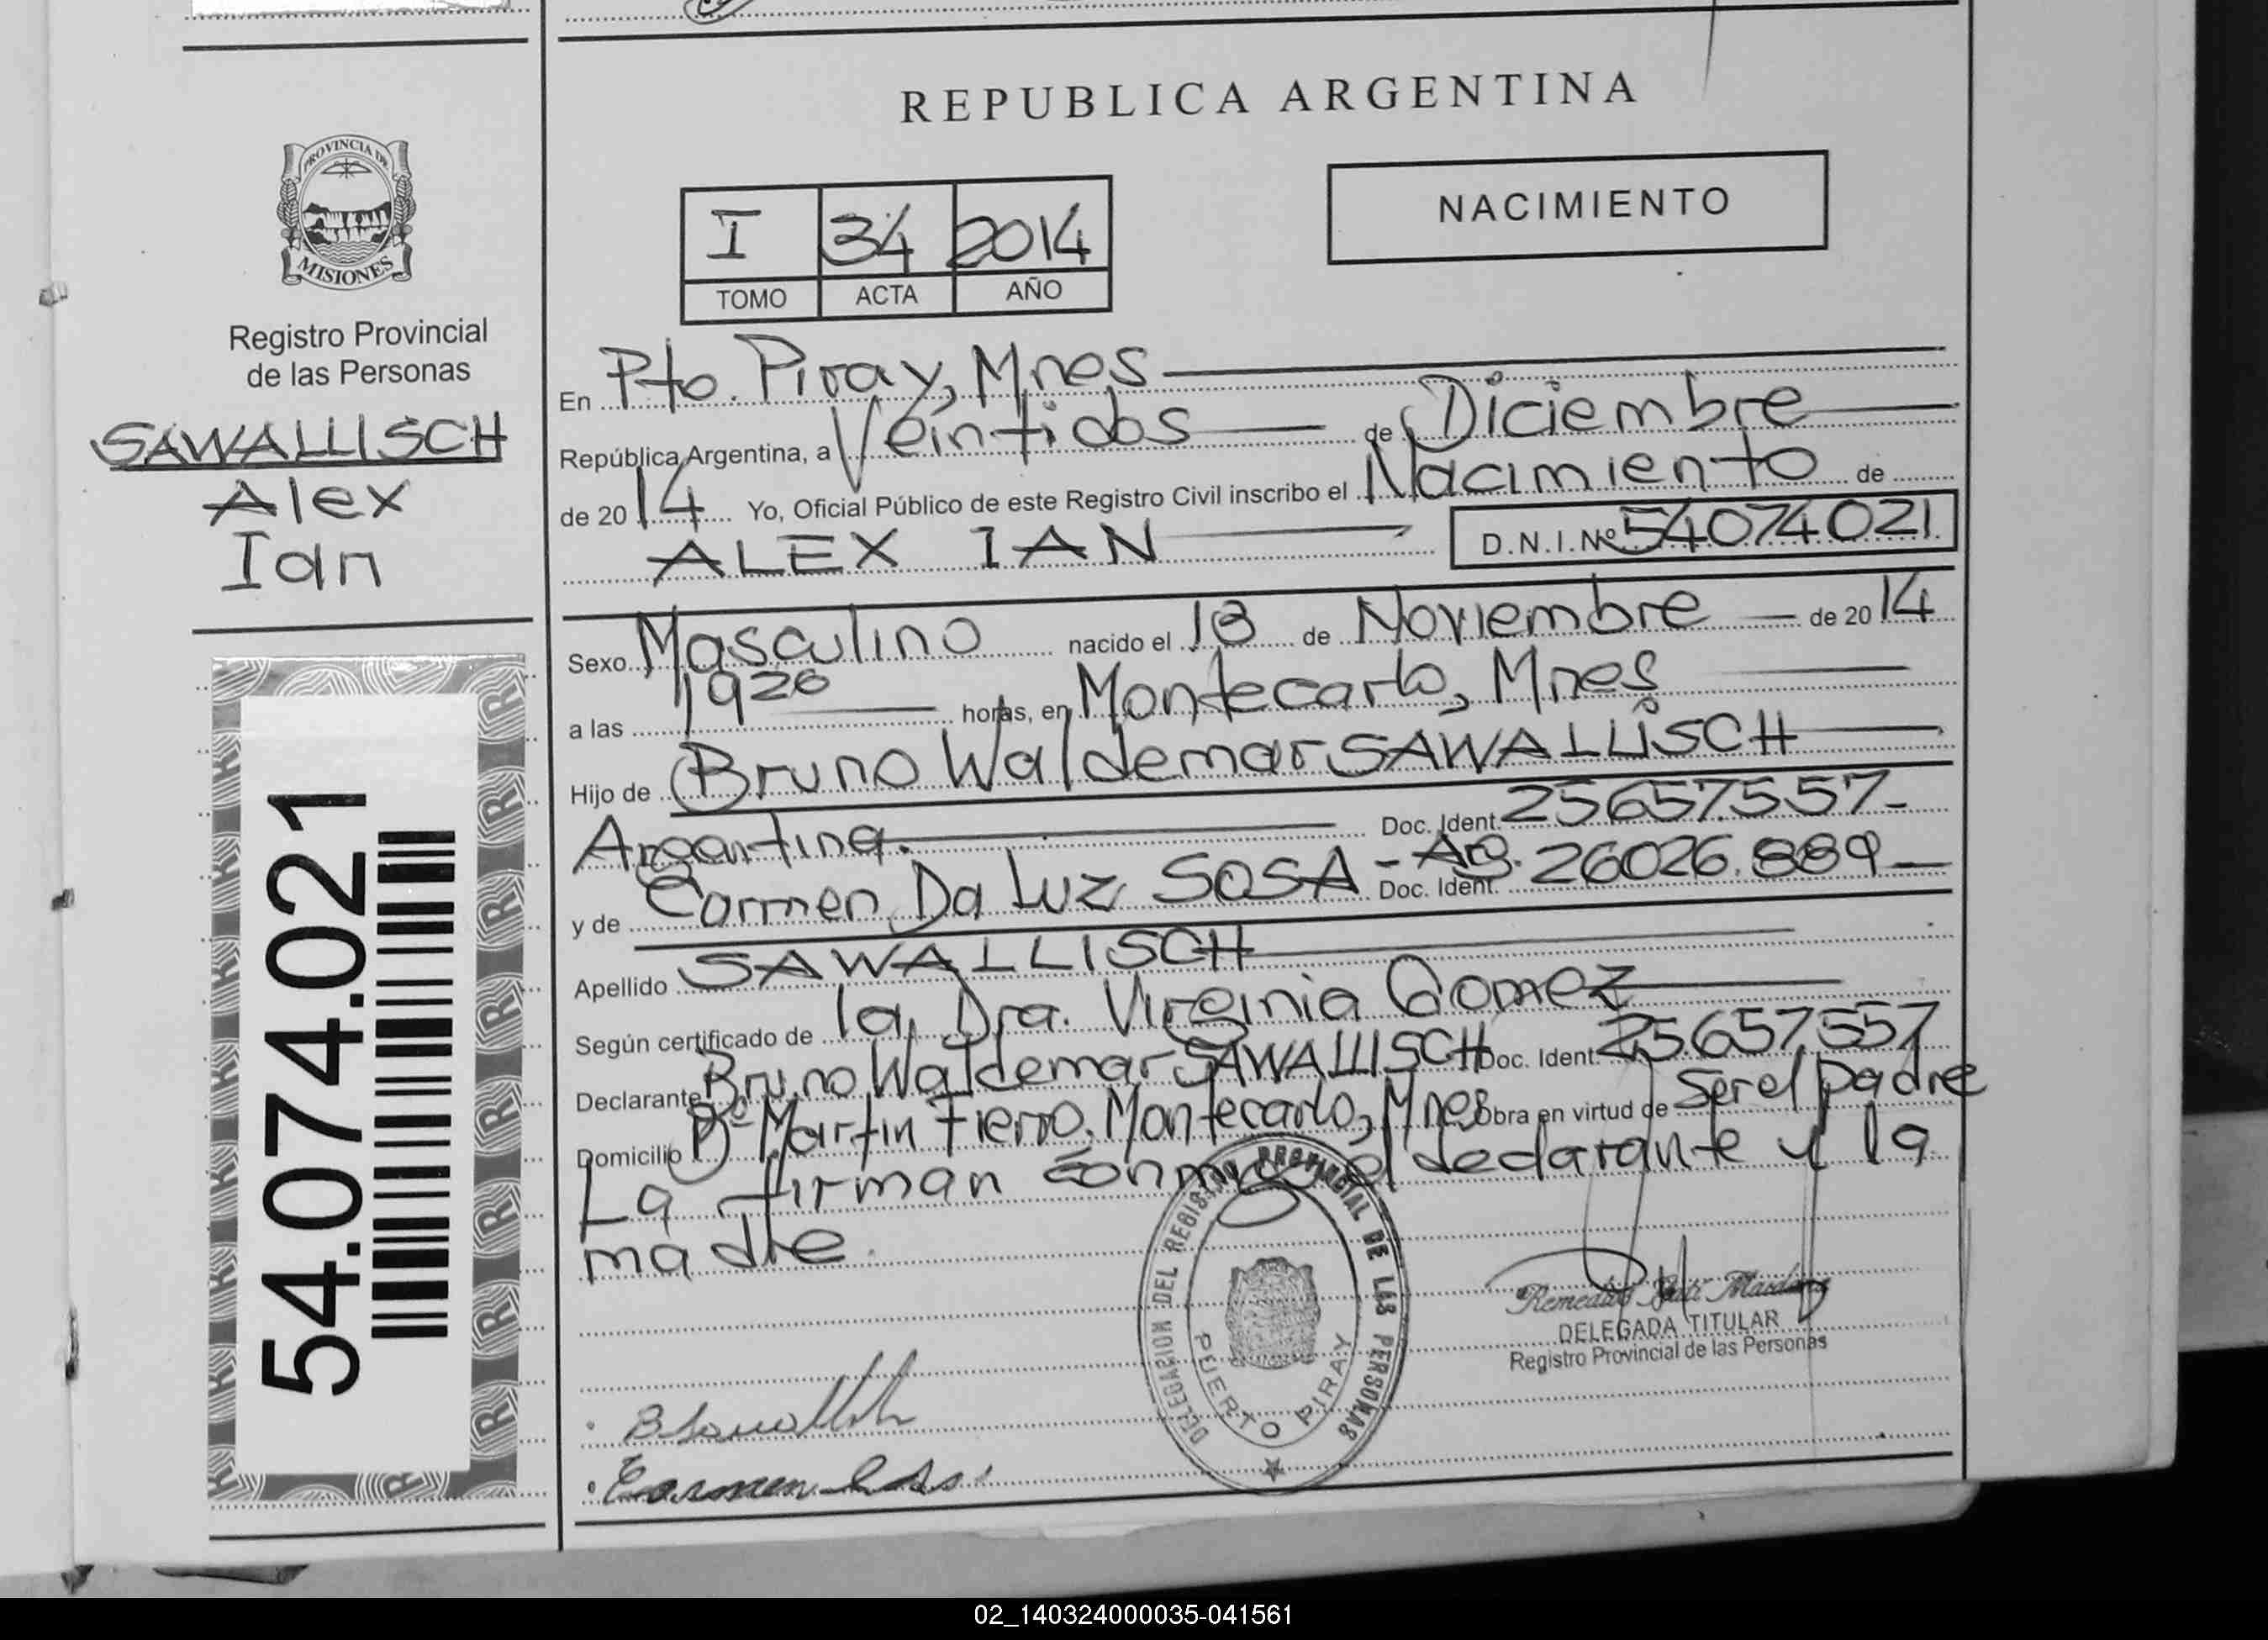 REPUBLICA ARGENTINA
PROVINCIA DE
MISIONES
Registro Provincial
de las Personas
SAWALLISCH
Alex
Ian
54.074.021
NACIMIENTO
I 34 2014
TOMO ACTA AÑO
En Pto. Piray, Mnes
República Argentina, a Veintidos de Diciembre
de 2014 Yo, Oficial Público de este Registro Civil inscribo el Nacimiento de
ALEX IAN D.N.I.Nº 54074021
Sexo Masculino nacido el 18 de Noviembre de 2014
a las 1920 horas, en Montecarlo, Mnes
Hijo de Bruno Waldemar SAWALLISCH
Argentina. Doc. Ident. 25657.557-
y de Carmen Da Luz SOSA - Arg. Doc. Ident. 26026.889
Apellido SAWALLISCH
Según certificado de la Dra. Virginia Gomez
Declarante Bruno Waldemar SAWALLISCH Doc. Ident. 25.657.557
Domicilio Bº Martin Fierro, Montecarlo, Mnes Obra en virtud de Ser el padre
La firman conmigo el declarante y la
madre.
DELEGACION DEL REGISTRO PROVINCIAL DE LAS PERSONAS
PUERTO PIRAY
DELEGADA TITULAR
Registro Provincial de las Personas
02_140324000035-041561